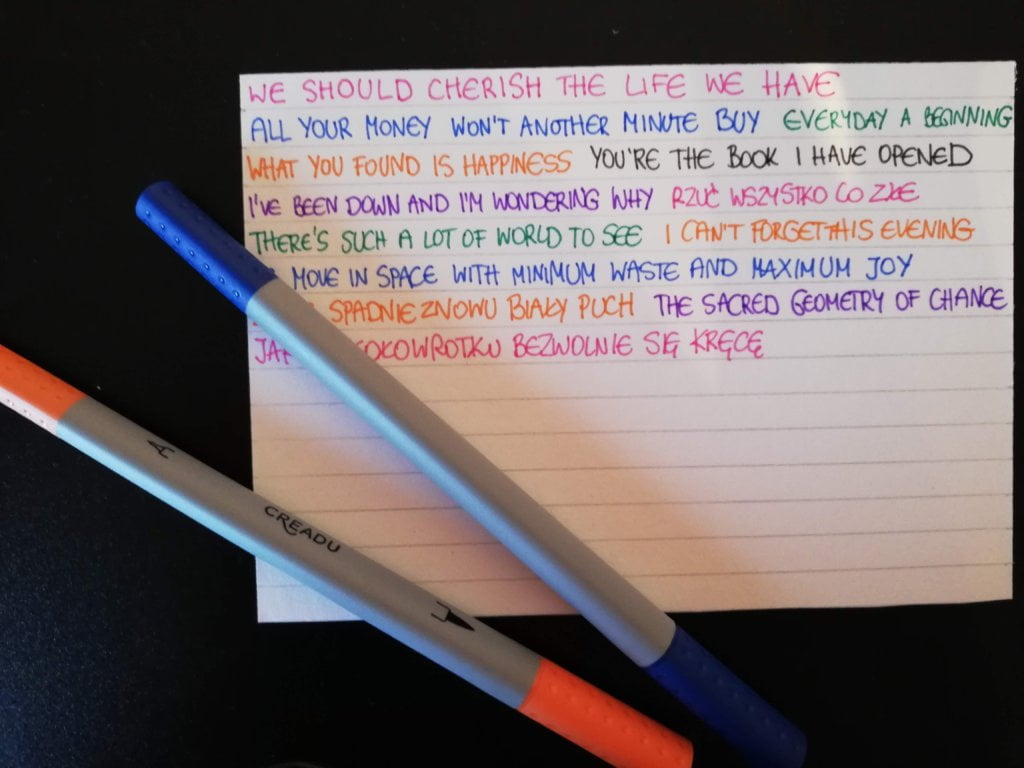 WE SHOULD CHERISH THE LIFE WE HAVE
ALL YOUR MONEY WON'T ANOTHER MINUTE BUY EVERYDAY A BEGINNING
WHAT YOU FOUND IS HAPPINESS YOU'RE THE BOOK I HAVE OPENED
I'VE BEEN DOWN AND I'M WONDERING WHY RZUĆ WSZYSTKO CO ZŁE
THERE'S SUCH A LOT OF WORLD TO SEE I CAN'T FORGET THIS EVENING
MOVE IN SPACE WITH MINIMUM WASTE AND MAXIMUM JOY
SPADNIE ZNOWU BIAŁY PUCH THE SACRED GEOMETRY OF CHANCE
BEZWOLNIE SIĘ KRĘCĘ
A
CREADU